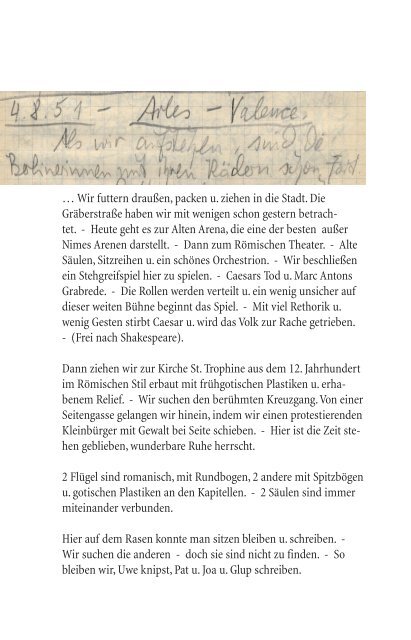 4.8.51 - Arles - Valence.
Als wir aufstehen, sind die
Berlinerinnen mit ihren Rädern schon fast
… Wir futtern draußen, packen u. ziehen in die Stadt. Die
Gräberstraße haben wir mit wenigen schon gestern betrach-
tet. - Heute geht es zur Alten Arena, die eine der besten außer
Nimes Arenen darstellt. - Dann zum Römischen Theater. - Alte
Säulen, Sitzreihen u. ein schönes Orchestrion. - Wir beschließen
ein Stehgreifspiel hier zu spielen. - Caesars Tod u. Marc Antons
Grabrede. - Die Rollen werden verteilt u. ein wenig unsicher auf
dieser weiten Bühne beginnt das Spiel. - Mit viel Rethorik u.
wenig Gesten stirbt Caesar u. wird das Volk zur Rache getrieben.
- (Frei nach Shakespeare).
Dann ziehen wir zur Kirche St. Trophine aus dem 12. Jahrhundert
im Römischen Stil erbaut mit frühgotischen Plastiken u. erha-
benem Relief. - Wir suchen den berühmten Kreuzgang. Von einer
Seitengasse gelangen wir hinein, indem wir einen protestierenden
Kleinbürger mit Gewalt bei Seite schieben. - Hier ist die Zeit ste-
hen geblieben, wunderbare Ruhe herrscht.
2 Flügel sind romanisch, mit Rundbogen, 2 andere mit Spitzbögen
u. gotischen Plastiken an den Kapitellen. - 2 Säulen sind immer
miteinander verbunden.
Hier auf dem Rasen konnte man sitzen bleiben u. schreiben. -
Wir suchen die anderen - doch sie sind nicht zu finden. - So
bleiben wir, Uwe knipst, Pat u. Joa u. Glup schreiben.